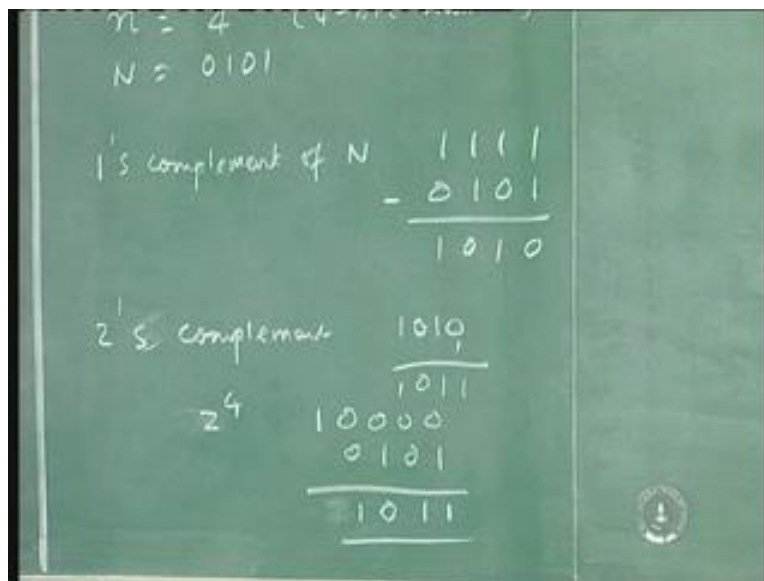 n = 4
N = 0101
1's complement of N 1111
- 0101
1010
2's complement 1010
1
1011
2^4 10000
0101
1011